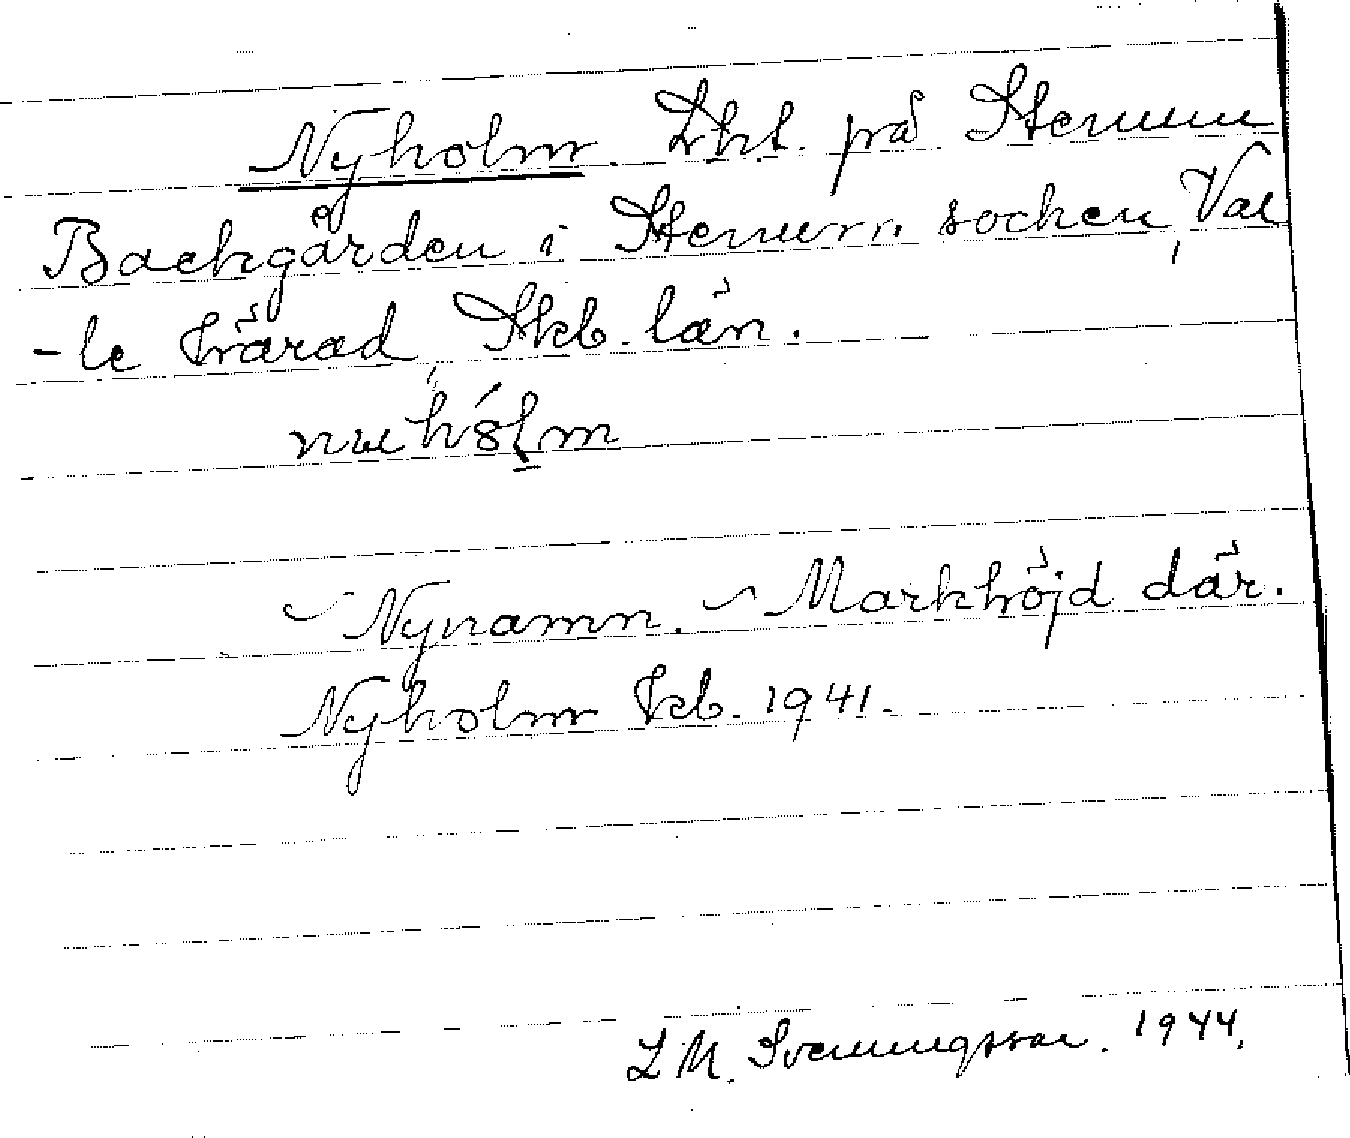 Nyholm. Lht. på Stenum
Backgården i Stenum socken, Val
-le härad, Skb. län.
Nynamn. Markhöjd där.
Nyholm kb. 1941.
L M. Svenungsson. 1944.